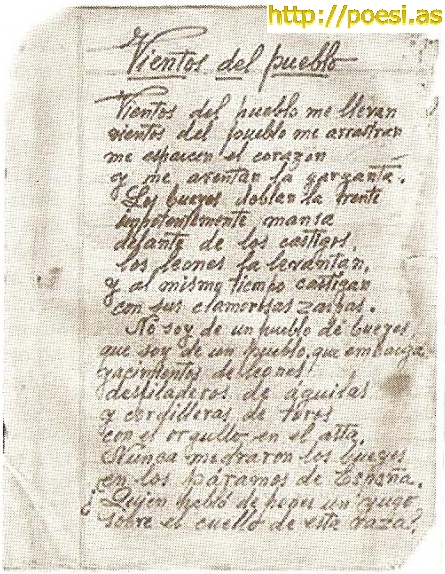 http://poesi.as
Vientos del pueblo
Vientos del pueblo me llevan
vientos del pueblo me arrastran
me esparcen el corazon
y me aventan la garganta.
Los bueyes doblan la frente
impotentemente mansa
delante de los castigos.
los leones la levantan,
y al mismo tiempo castigan
con sus clamorosas zarpas.
No soy de un pueblo de bueyes,
que soy de un pueblo que embarga
yacimientos de leones
desfiladeros de águilas
y cordilleras de toros
con el orgullo en el asta.
Nunca medraron los bueyes
en los páramos de España.
¿Quien habló de poner un yugo
sobre el cuello de esta raza?